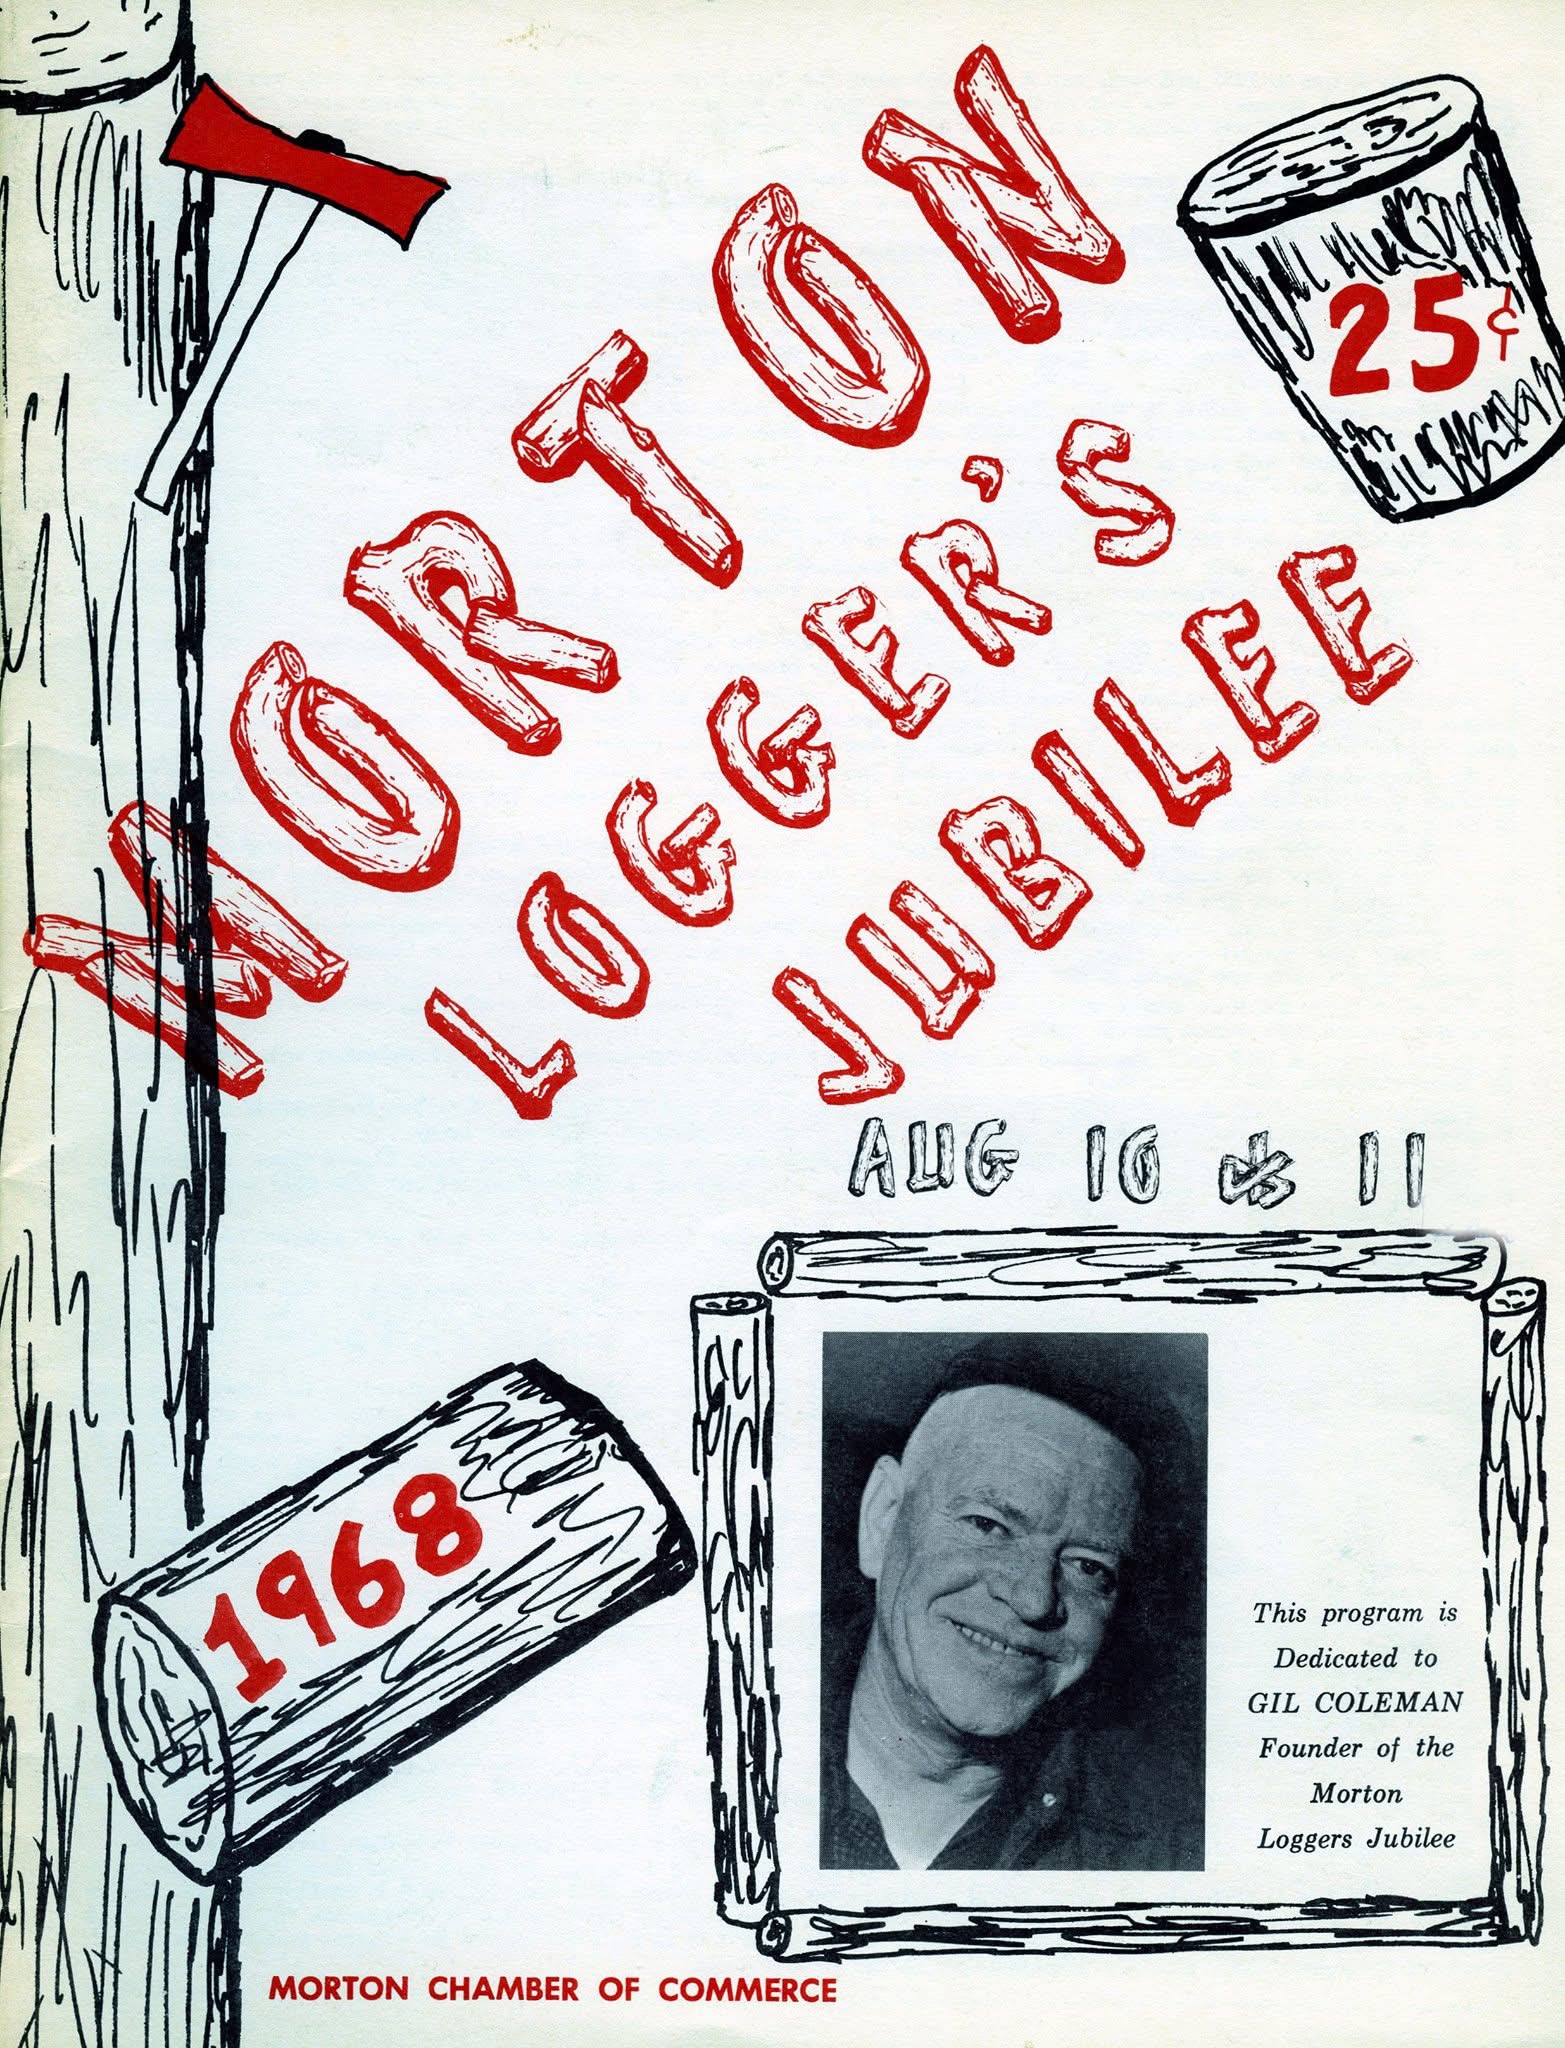 MORTON
LOGGER'S
JUBILEE
25¢
AUG 10 & 11
1968
This program is
Dedicated to
GIL COLEMAN
Founder of the
Morton
Loggers Jubilee
MORTON CHAMBER OF COMMERCE